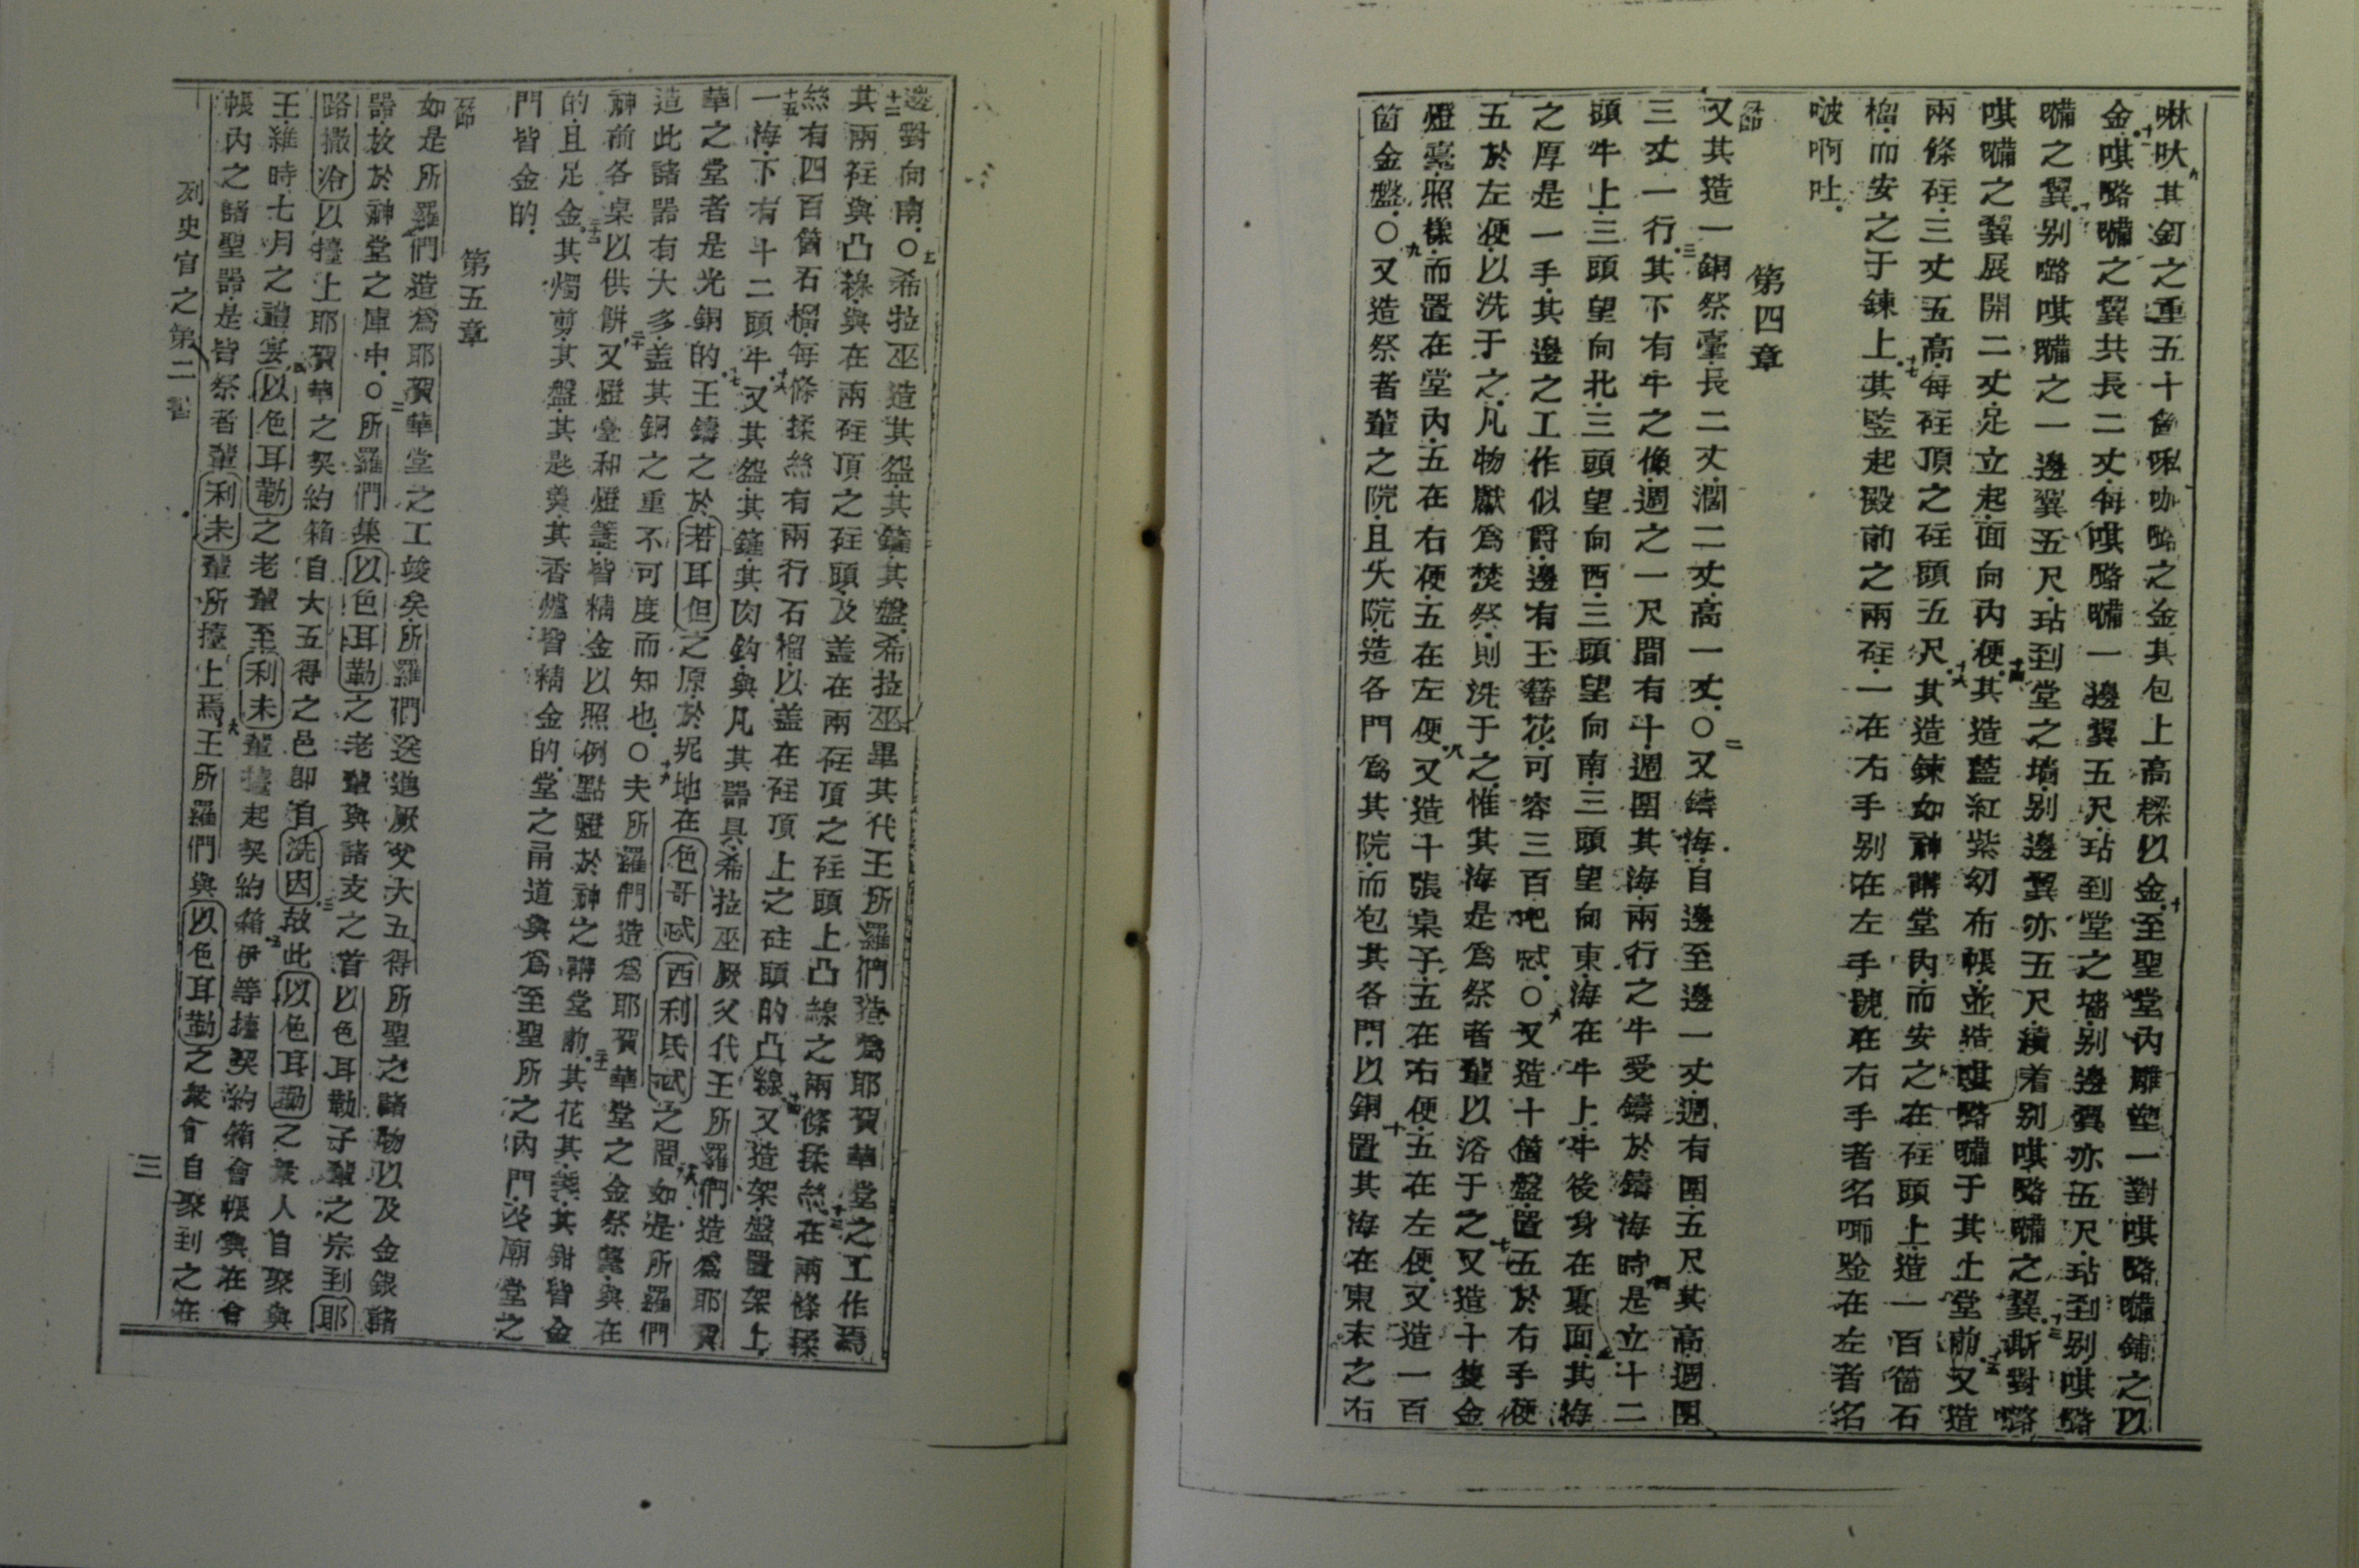 啉吠其釘之重五十㑹𠸄咖𭊌之金其包上高樑以金十至聖堂內雕塑一對唭𭊌𠿑鋪之以
金十一唭𭊌𠿑之翼共長二丈每唭𭊌𠿑一邊翼五尺玷到堂之墻别邊翼亦五尺玷到别唭𭊌
𠿑之翼十二别𭊌唭𠿑之一邊翼五尺玷到堂之墻别邊翼亦五尺續着别唭𭊌𠿑之翼十三斯對𭊌
唭𠿑之翼展開二丈足立起面向內便十四其造藍紅紫幼布帳並造唭𭊌𠿑于其上堂前十五又造
兩條砫三丈五高每砫頂之砫頭五尺十六其造鍊如神講堂內而安之在砫頭上造一百箇石
榴而安之于鍊上十七其竪起殿前之兩砫一在右手别在左手號在右手者名唓唫在左者名
啵啊吐
第四章
節
又其造一銅祭臺長二丈濶二丈高一丈○二又鑄海自邊至邊一丈週有圍五尺其高週圍
三丈一行三其下有牛之像週之一尺間有斗週圍其海兩行之牛受鑄於鑄海時四是立十二
頭牛上三頭望向北三頭望向西三頭望向南三頭望向東海在牛上牛後身在裏面五其海
之厚是一手其邊之工作似爵邊有玉簪花可容三百吧㖹○六又造十箇盤置五於右手便
五於左便以洗于之凡物獻爲焚祭則洗于之惟其海是爲祭者輩以浴于之七又造十隻金
燈臺照樣而置在堂內五在右便五在左便八又造十張桌子五在右便五在左便又造一百
箇金盤○九又造祭者輩之院且大院造各門爲其院而包其各門以銅十置其海在東末之右
邊對向南○十一希拉巫造其盌其鏟其盤希拉巫畢其代王所羅們造爲耶賀華堂之工作焉
十二其兩砫與凸線與在兩砫頂之砫頭及盖在兩砫頂之砫頭上凸線之兩條揉絲十三在兩條揉
絲有四百箇石榴每條揉絲有兩行石榴以盖在砫頂上之砫頭的凸線十四又造架盤置架上
十五一海下有十二頭牛十六又其盌其鏟其肉鈎與凡其器具希拉巫厥父代王所羅們造爲耶賀
華之堂者是光銅的十七王鑄之於若耳但之原於坭地在色哥忒西利氐忒之間十八如是所羅們
造此諸器有大多盖其銅之重不可度而知也○十九夫所羅們造爲耶賀華堂之金祭臺與在
神前各桌以供餅二十又燈臺和燈盞皆精金以照例點燈於神之講堂前二十一其花其盞其鉗皆金
的且足金二十二其燭剪其盤其匙羹其香爐皆精金的堂之甬道與爲至聖所之內門及廟堂之
門皆金的
第五章
節
如是所羅們造爲耶賀華堂之工竣矣所羅們送進厥父大五得所聖之諸物以及金銀諸
器放於神堂之庫中○二所羅們集以色耳勒之老輩與諸支之首以色耳勒子輩之宗到耶
路撒冷以擡上耶賀華之契約箱自大五得之邑即自洗因三故此以色耳勒之衆人自聚與
王維時七月之禮宴四以色耳勒之老輩至利未輩擡起契約箱五伊等擡契約箱會帳與在會
帳內之諸聖器是皆祭者輩利未輩所擡上焉六王所羅們與以色耳勒之衆會自聚到之在
列史官之第二書
三